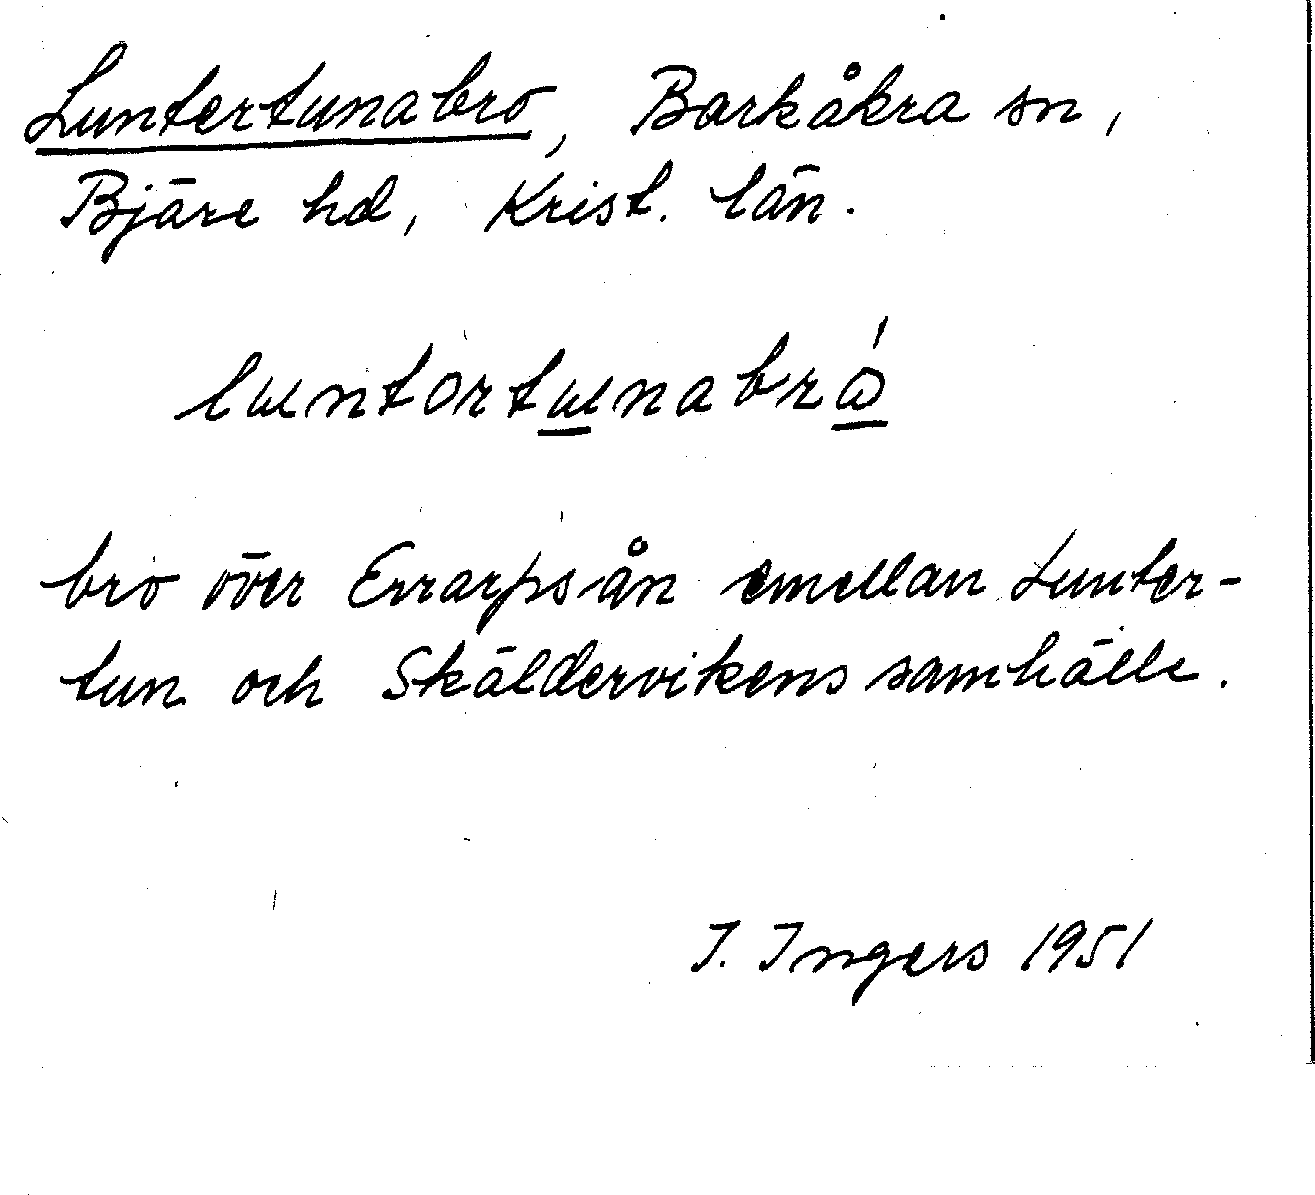 Luntertunabro, Barkåkra sn,
Bjäre hd, Krist. län.
luntortunabrω̊́
bro över Errarpsån emellan Lunter-
tun och Skäldervikens samhälle.
I. Ingers 1951